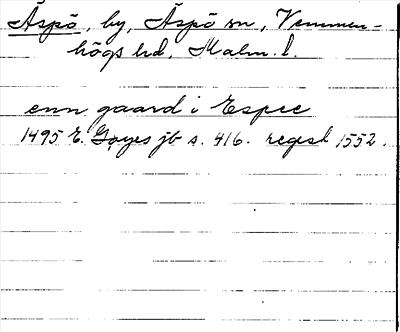 Äspö, by, Äspö sn, Vemmen-
högs hd, Malm. l.
enn gaard i Espee
1495 E. Gøyes jb s. 416. regest 1552.